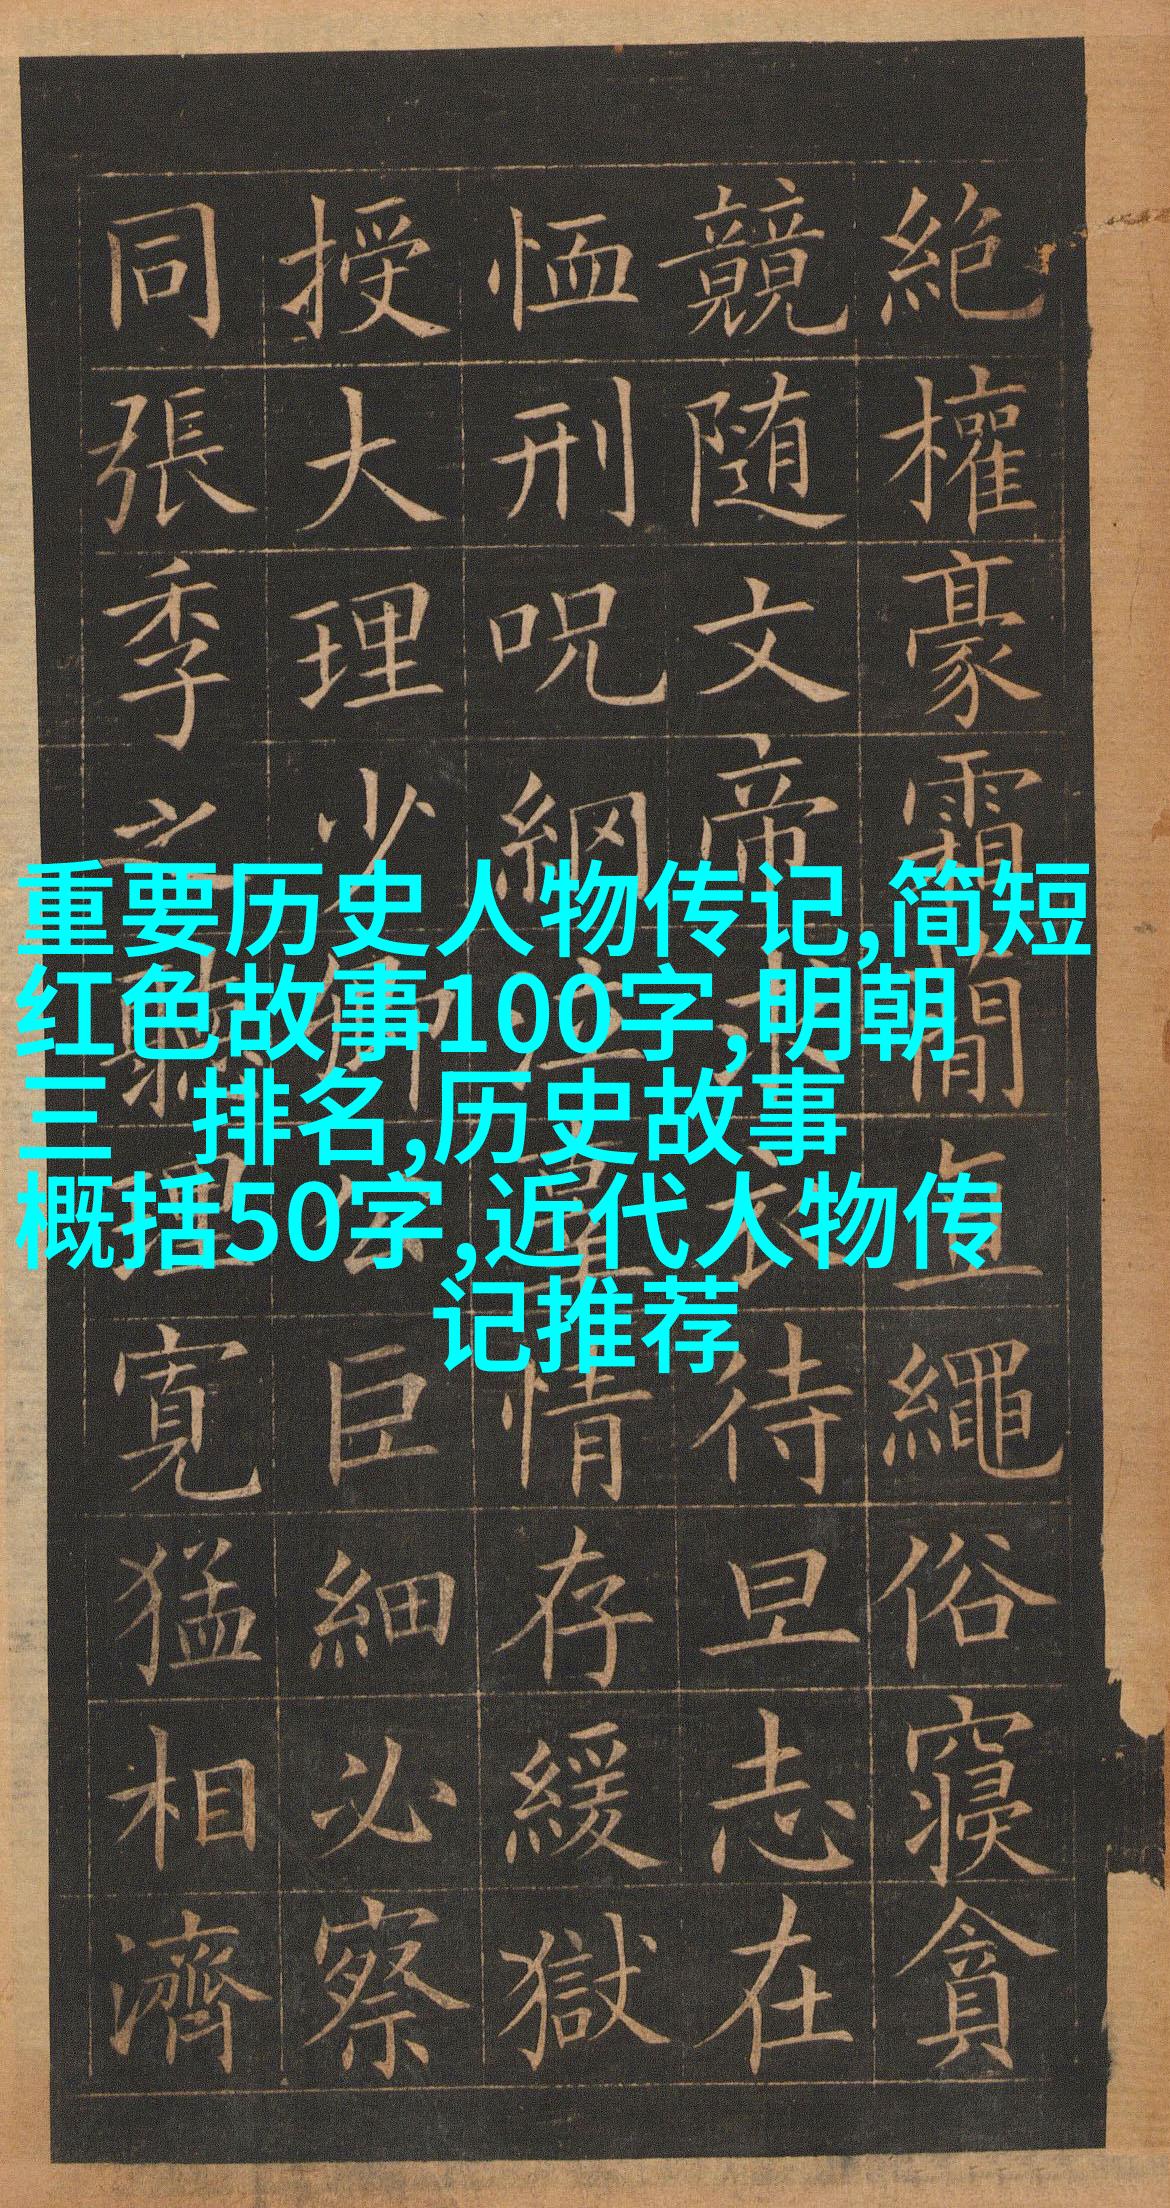 重要历史人物传记,简短
红色故事100字,明朝
三 排名,历史故事
概括50字,近代人物传
记推荐
絶權豪霜簡直繩俗寢貪
競随文帝求衣待旦志在
恤刑呪網泣辜情存緩獄
授大理少卿公巨細必察
同張季之聽理寬猛相濟